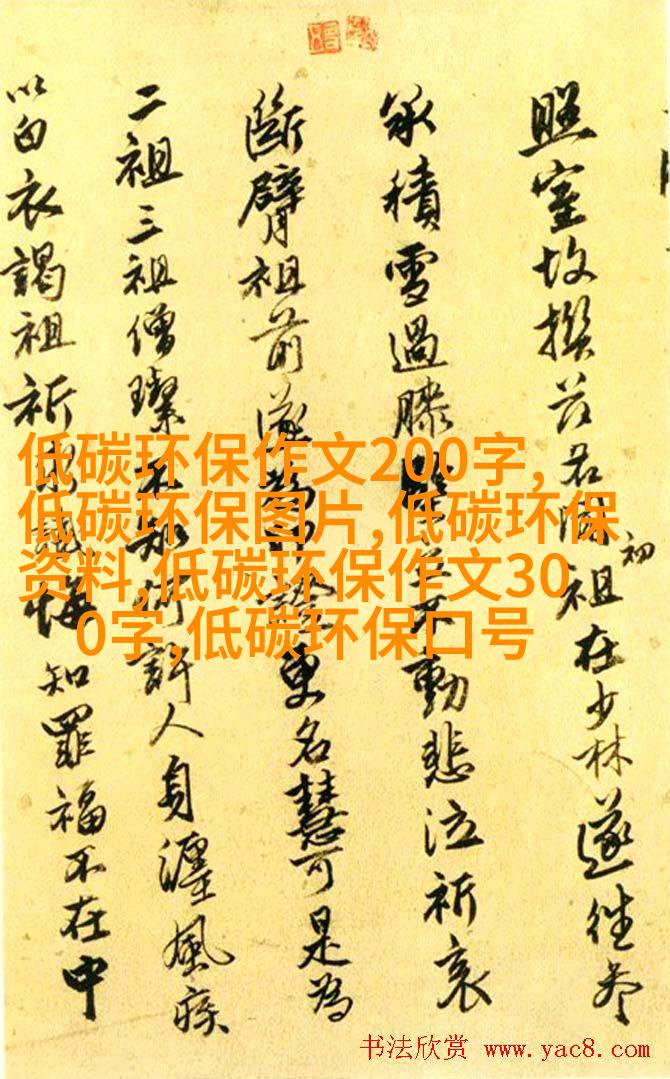 照室故撰茲名祖初在少林遂往參
承積雪過膝立不動悲泣祈哀
斷臂祖前遂為更名慧可是為
二祖三祖僧璨不知何許人身纏風疾
以白衣謁祖祈悔知罪福不在中
低碳环保作文200字,
低碳环保图片,低碳环保
资料,低碳环保作文30
0字,低碳环保口号
书法欣赏 www.yac8.com